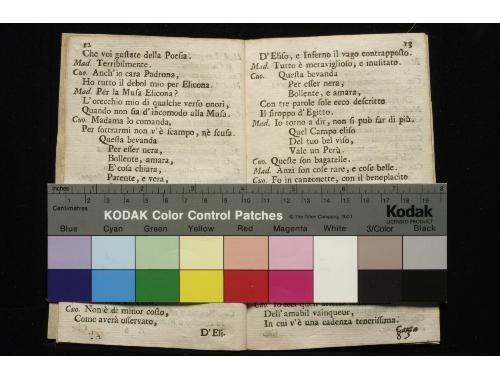 12
Che voi gustate della Poesia.
Mad. Terribilmente.
Cuo. Anch'io cara Padrona,
Ho tutto il debol mio per Elicona.
Mad. Per la Musa Elicona?
L'orecchio mio di qualche verso onori,
Quando non sia d'incomodo alla Musa.
Cuo. Madama lo comanda,
Per sottrarmi non v'è scampo, nè scusa.
Questa bevanda
Per esser nera,
Bollente, amara,
E' cosa chiara,
Parente, e vera,
Cuo. Non è di minor costo,
Come averà osservato,
D'Eli-
13
D'Eliso, e Inferno il vago contrapposto.
Mad. Tutto è meraviglioso, e inusitato.
Cuo. Questa bevanda
Per esser nera,
Bollente, e amara,
Con tre parole sole ecco descritto
Il siroppo d'Egitto.
Mad. Io torno a dir, non si può far di più.
Quel Campo eliso
Del tuo bel viso,
Vale un Perù.
Cuo. Queste son bagatelle.
Mad. Anzi son cose rare, e cose belle.
Cuo. Fo in canzonette, con il beneplacito
Dell'amabil vainqueur,
In cui v'è una cadenza tenerissima.
83
Inches 1 2 3 4 5 6 7 8
Centimetres 1 2 3 4 5 6 7 8 9 10 11 12 13 14 15 16 17 18 19
KODAK Color Control Patches
© The Tiffen Company, 2000
Kodak
LICENSED PRODUCT
Blue Cyan Green Yellow Red Magenta White 3/Color Black